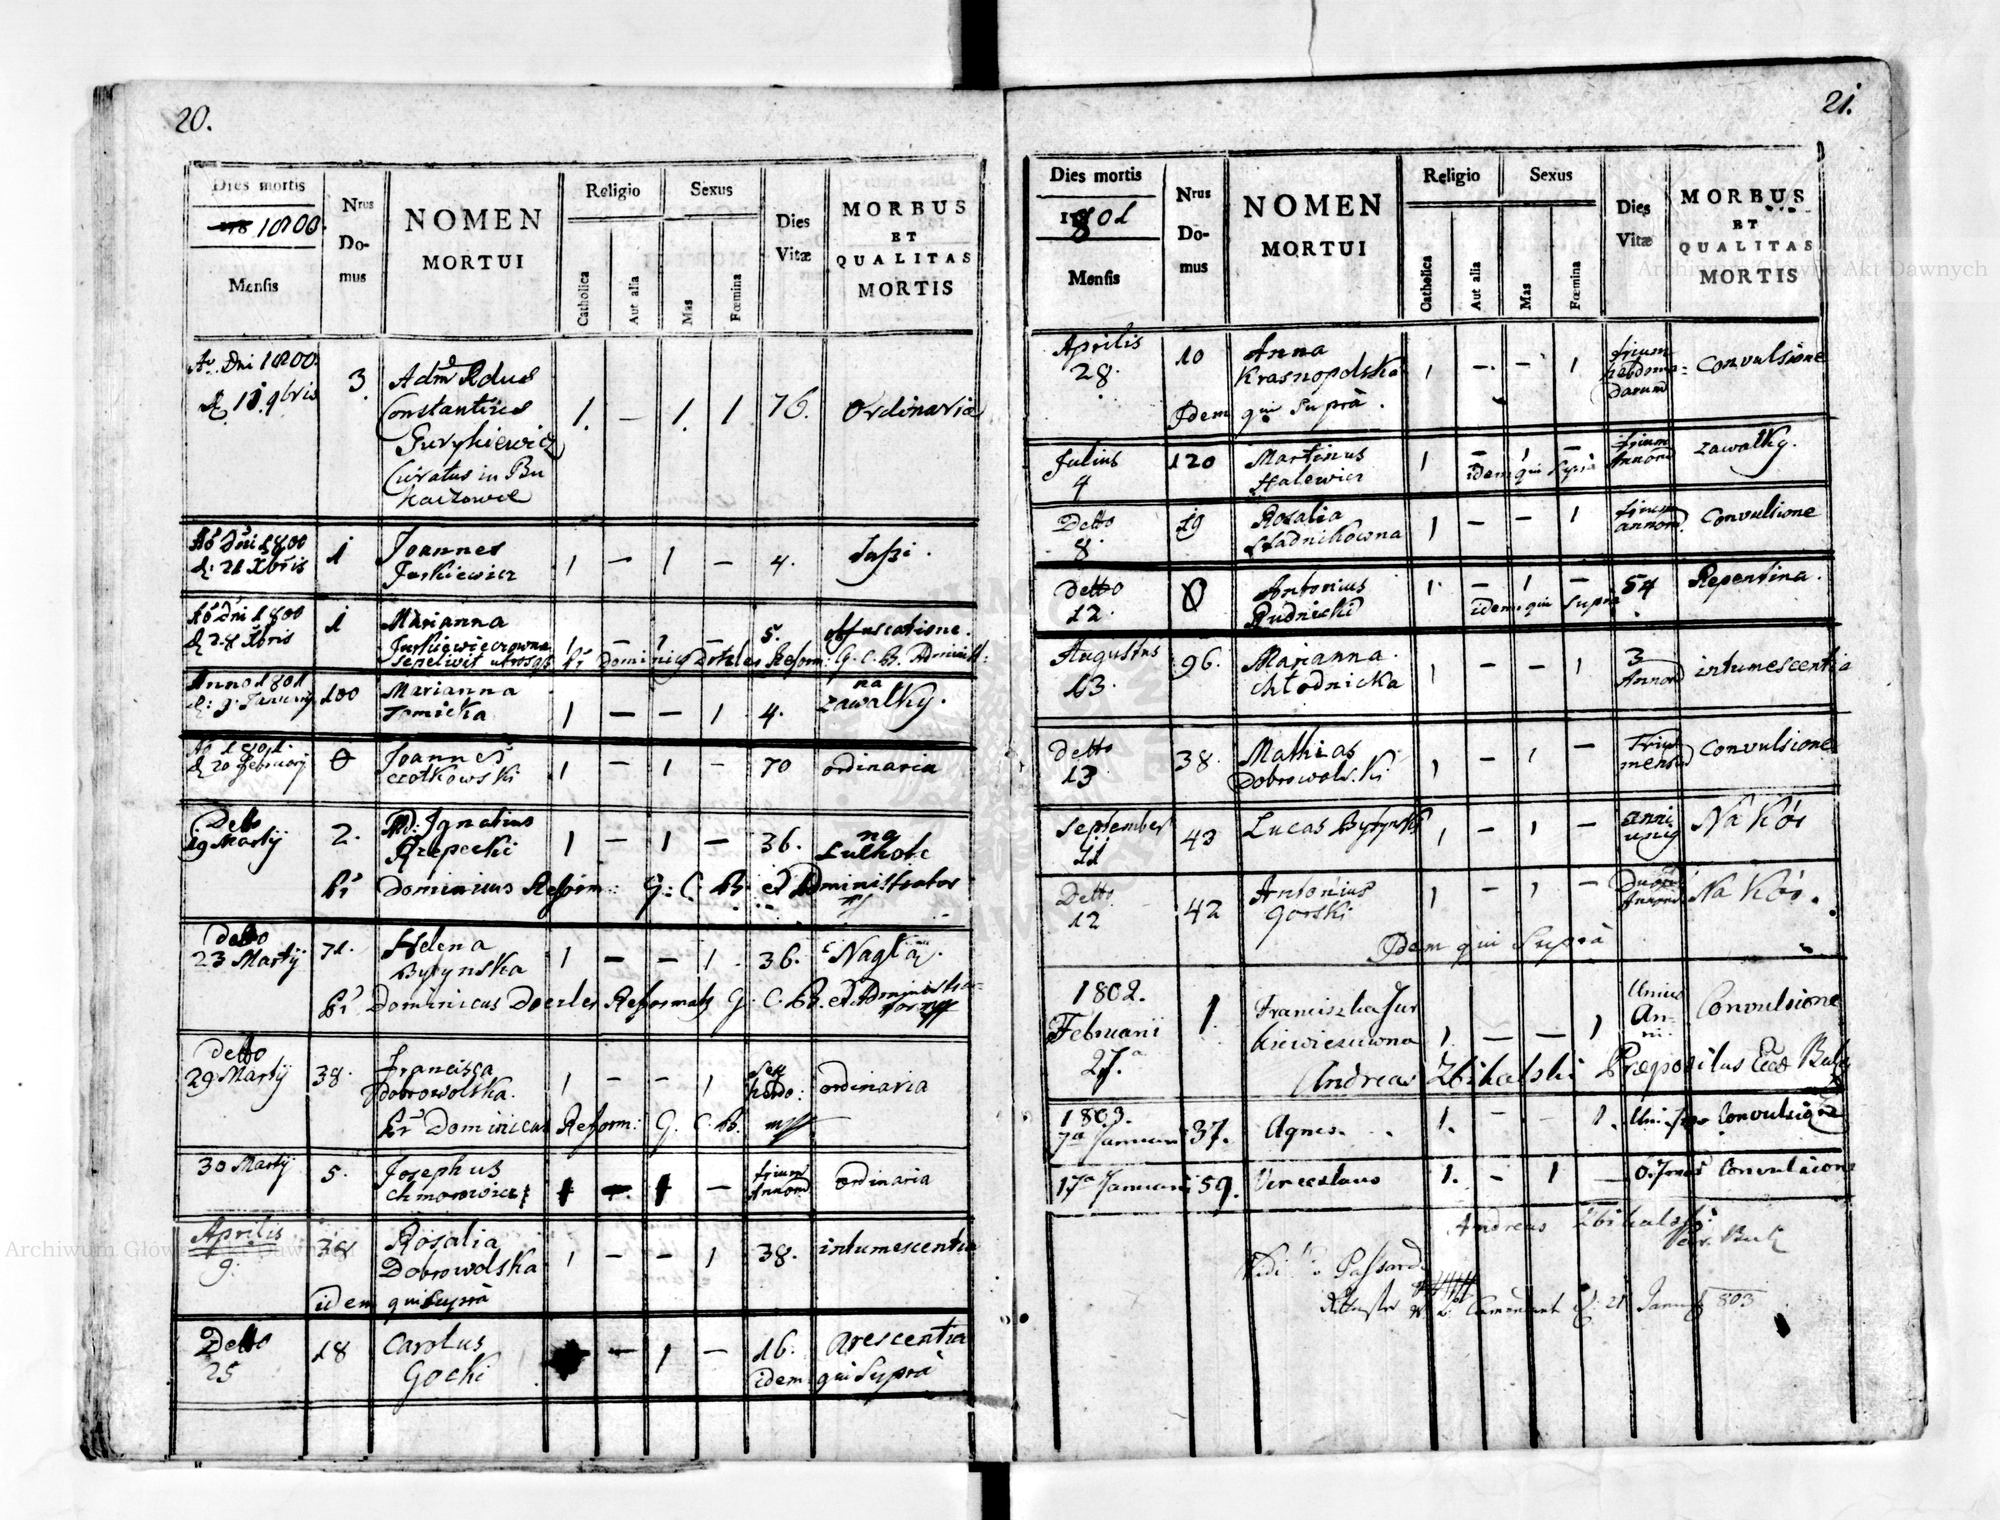 20.
Dies mortis
1800.
Mensis
Nrus
Do-
mus
NOMEN
MORTUI
Religio
Catholica
Aut alia
Sexus
Mas
Fœmina
Dies
Vitæ
MORBUS
ET
QUALITAS
MORTIS
Ao. Dni 1800. 3. Admd Rdus
d. 11. 9bris Constantinus 1. — 1. 1 76. Ordinaria
Curatus in Bu
kaczowce
Ao Dni 1800 1 Joannes
d: 21 Xbris Jurkiewicz 1 — 1 — 4. Tussi.
Ao Dni 1800 1 Marianna
d 28 Xbris Jurkiewiczowna 1 — 1 — 5.
sepelivit utrosq Fr Dominicus Reform: G. C. B. Administ:
Anno 1801 100 Marianna na
d: 9 Januarij Tomicka 1 — — 1 4. zawalky.
Ao 1801. 0 Joannes
d. 20 february czotkowski 1 — 1 — 70 ordinaria
Detto 2. Ignatius na
19 Martij Rzepecki 1 — 1 — 36.
Fr Dominicus Reform: G: C. B. et Administrator
Detto
23 Martij 71. Helena 1 — — 1. 36. Nagla
Bytynska
Fr Dominicus Doerler Reformat G. C. B. et Administra-
tor
Detto
29 Martij 38. Francisca
Dobrowolska. 1 — — 1 ordinaria
Fr Dominicus Reform: G. C. B. mp
30 Martij 5. Josephus trium
Chmorowicz 1 — 1 — Annor ordinaria
Aprilis
9. 38 Rosalia
Dobrowolska 1 — — 1 38. intumescentia
idem qui supra
Detto 18 Carolus
25 Gocki — 1 — 16. Arescentia
idem qui Supra
21.
Dies mortis
1801
Mensis
Nrus
Do-
mus
NOMEN
MORTUI
Religio
Catholica
Aut alia
Sexus
Mas
Fœmina
Dies
Vitæ
MORBUS
ET
QUALITAS
MORTIS
Aprilis 10 Anna trium
28. Krasnopolska 1 — — 1 hebdoma= convulsione
darum
Idem qui Supra.
Julius 120 Martinus 1 — 1 — trium zawalky.
4 Halewicz idem qui Supra Annor
Detto 19 Rosalia trium convulsione
8. Stadnikowna 1 — — 1 annor
Detto 0 Antonius 1. — 1 — 54 Repentina.
12. Rudnicki idem qui Supra
Augustus 96. Marianna. 3
13. Chłodnicka 1 — — 1 Annor intumescentia
Detto 38. Mathias Trium convulsione
13 Dobrowolski 1 — 1 — mensiu
September 43 Lucas Bytynski 1 — 1 — anni Na Kór
11 unius
Detto 42 Antonius 1 — 1 — Duor Na Kór.
12 Gorski Annor
Idem qui Supra
1802. Unius
Februarii 1. Franciszka Jur An- Convulsione
27.a kiewiczuwna 1. — — 1 ni.
Andreas Zbikalski Præpositus Eccl
1803.
7a Januarii 37. Agnes. 1. - - 1. Convulsione
17a Januarii 59. Venceslaus 1. - 1 — Convulsione
Andreas Zbikalski
21 Januarij 803